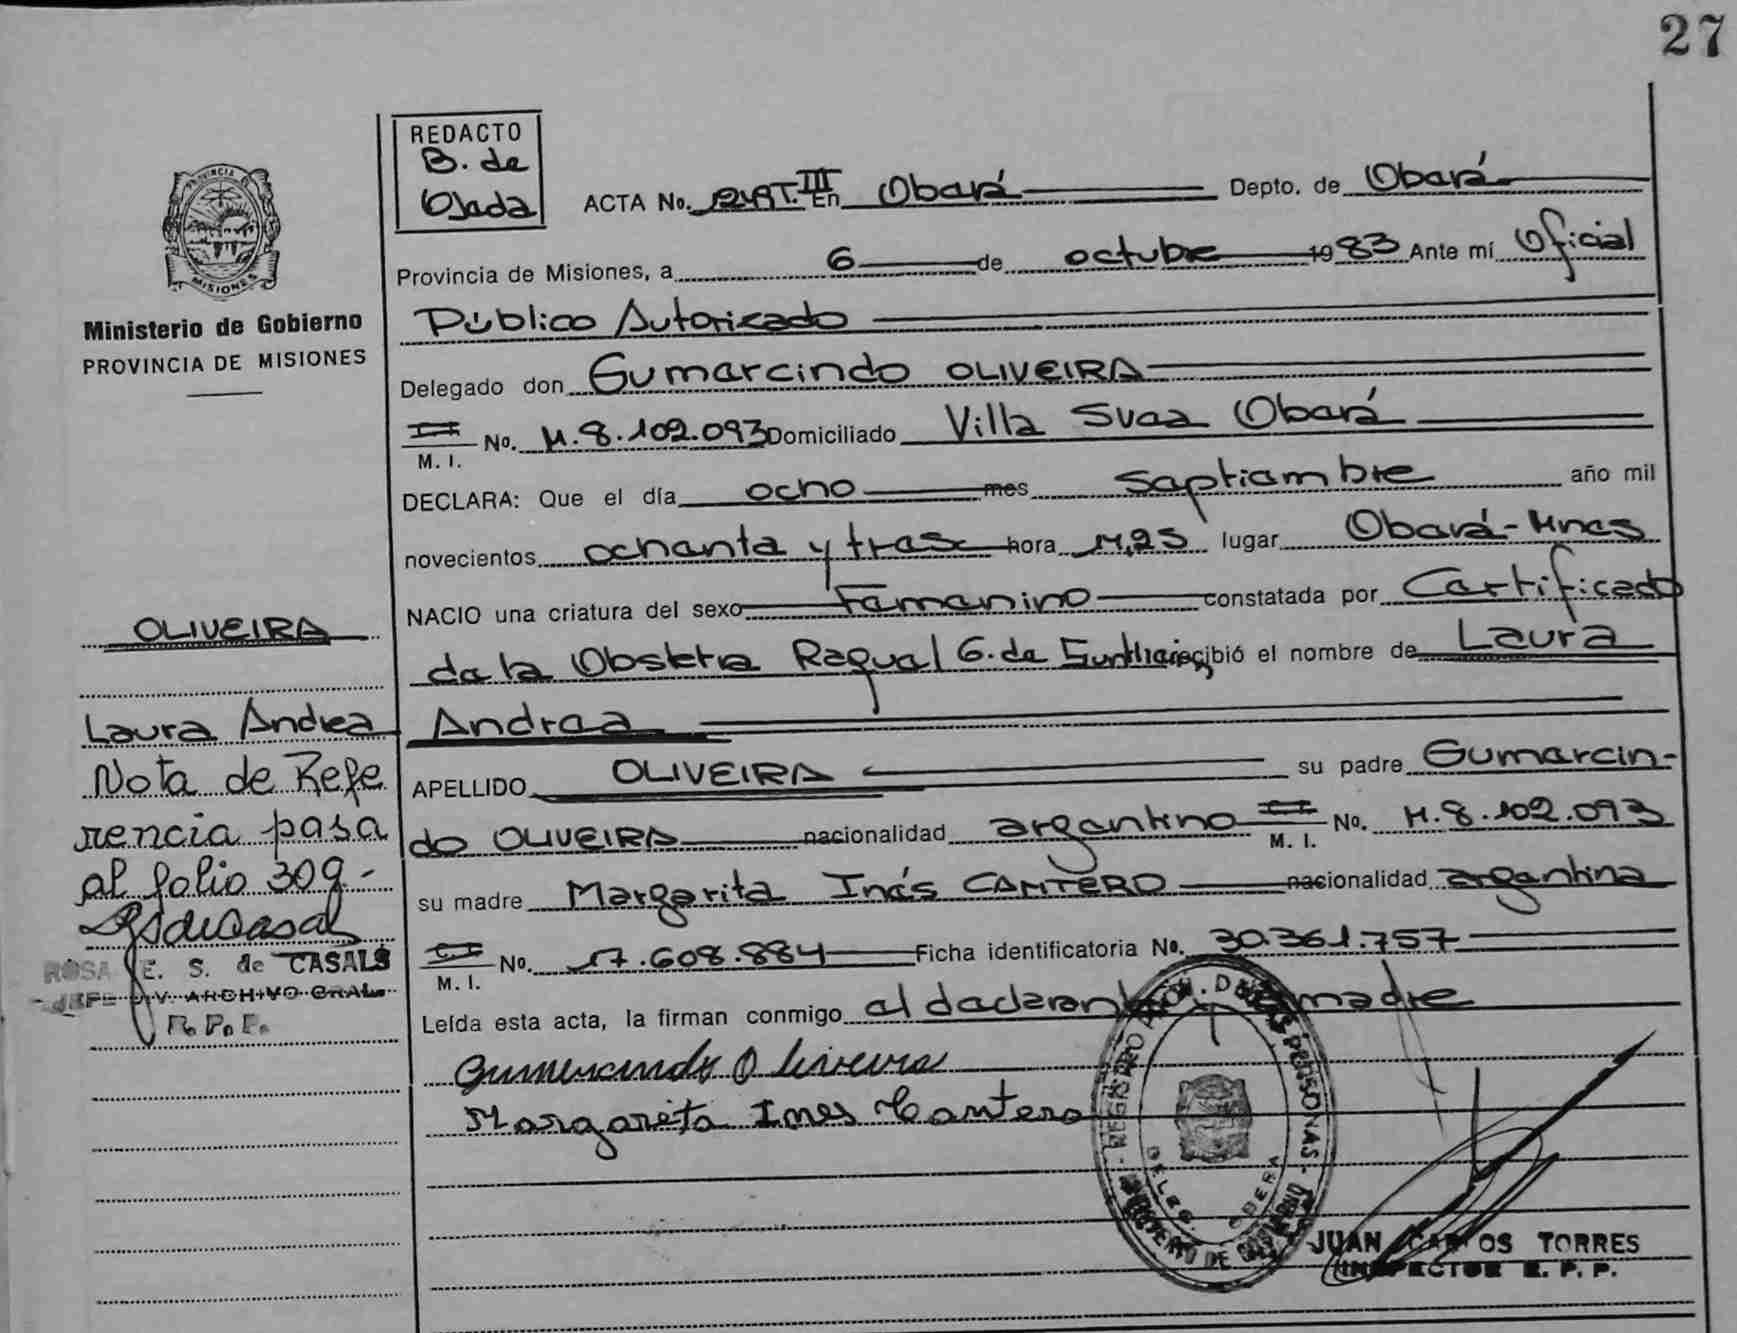 27
REDACTO
B. de
Ojeda
PROVINCIA
MISIONES
Ministerio de Gobierno
PROVINCIA DE MISIONES
ACTA No. T. III En Oberá Depto. de Oberá
Provincia de Misiones, a 6 de octubre 1983 Ante mí Oficial
Público Autorizado
Delegado don Gumercindo OLIVEIRA
M. I. No. M. 8.102.093 Domiciliado Villa Svea Oberá
DECLARA: Que el día ocho mes Septiembre año mil
novecientos ochenta y tres hora 11,25 lugar Oberá-Mnes
NACIO una criatura del sexo Femenino constatada por Certificado
de la Obstetra Raquel G. de recibió el nombre de Laura
Andrea
APELLIDO OLIVEIRA su padre Gumercin-
do OLIVEIRA nacionalidad argentino M. I. No. M. 8.102.093
su madre Margarita Inés CANTERO nacionalidad argentina
M. I. No. 17.608.884 Ficha identificatoria No. 30.361.757
Leída esta acta, la firman conmigo el declarante madre
Gumercindo Oliveira
Margarita Ines Cantero
OLIVEIRA
Laura Andrea
Nota de Refe
rencia pasa
al folio 309-
ROSA E. S. de CASALS
JEFE DIV. ARCHIVO GRAL.
R. P. P.
REGISTRO PERSONAS
DELEG. OBERA
JUAN CARLOS TORRES
INSPECTOR R. P. P.